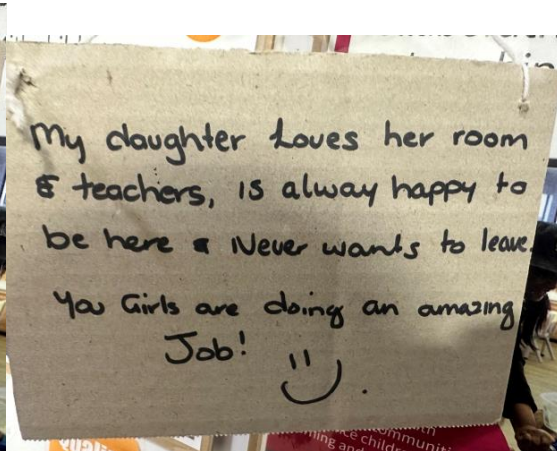 My daughter Loves her room
& teachers, is alway happy to
be here & Never wants to leave.
You Girls are doing an amazing
Job!